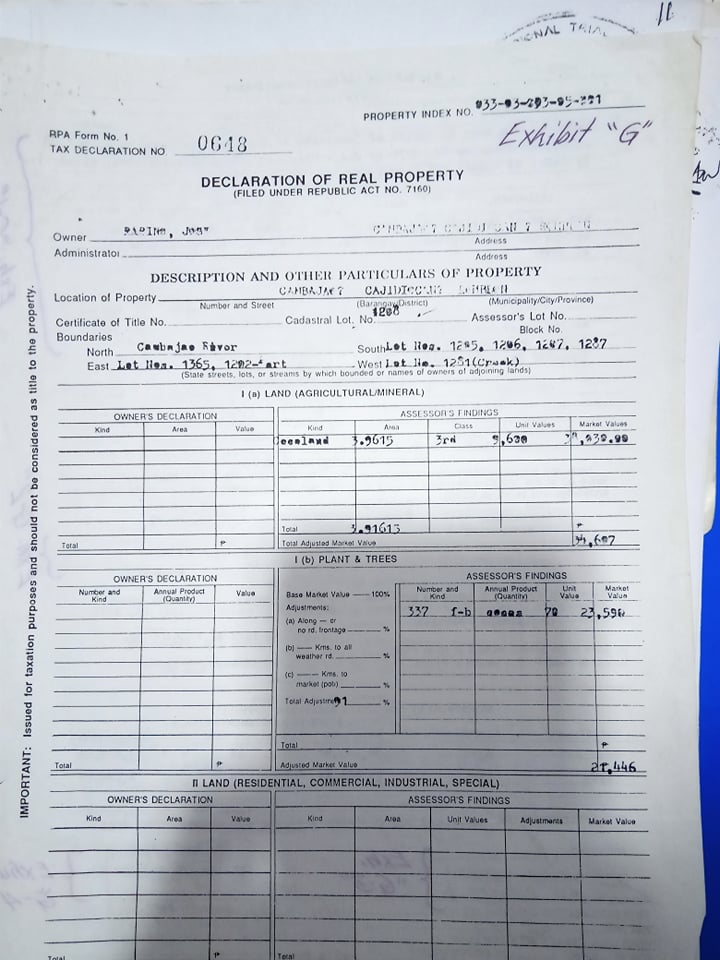 11
NAL TRIAL
PROPERTY INDEX NO.
Exhibit "G"
RPA Form No. 1
TAX DECLARATION NO 0648
DECLARATION OF REAL PROPERTY
(FILED UNDER REPUBLIC ACT NO. 7160)
Owner
Address
Administrator
Address
DESCRIPTION AND OTHER PARTICULARS OF PROPERTY
Location of Property
Number and Street (Barangay/District) (Municipality/City/Province)
Certificate of Title No. Cadastral Lot. No. 1208 Assessor's Lot No.
Block No.
Boundaries
North Cambajao River South Lot Nos. 1205, 1206, 1207, 1287
East Lot Nos. 1365, 1202-Part West Lot No. 1281(Creek)
(State streets, lots, or streams by which bounded or names of owners of adjoining lands)
IMPORTANT: Issued for taxation purposes and should not be considered as title to the property.
I (a) LAND (AGRICULTURAL/MINERAL)
OWNER'S DECLARATION ASSESSOR'S FINDINGS
Kind Area Value Kind Area Class Unit Values Market Values
3.9615 3rd
Total
Total ₱ Total Adjusted Market Value
I (b) PLANT & TREES
OWNER'S DECLARATION ASSESSOR'S FINDINGS
Number and Kind Annual Product (Quantity) Value Base Market Value — 100% Number and Kind Annual Product (Quantity) Unit Value Market Value
Adjustments: 337 f-b 70 23,590
(a) Along — or
no rd. frontage %
(b) — Kms. to all
weather rd. %
(c) — Kms. to
market (pob) %
Total Adjustment 91 %
Total ₱
Total ₱ Adjusted Market Value 21,446
II LAND (RESIDENTIAL, COMMERCIAL, INDUSTRIAL, SPECIAL)
OWNER'S DECLARATION ASSESSOR'S FINDINGS
Kind Area Value Kind Area Unit Values Adjustments Market Value
Total ₱ Total